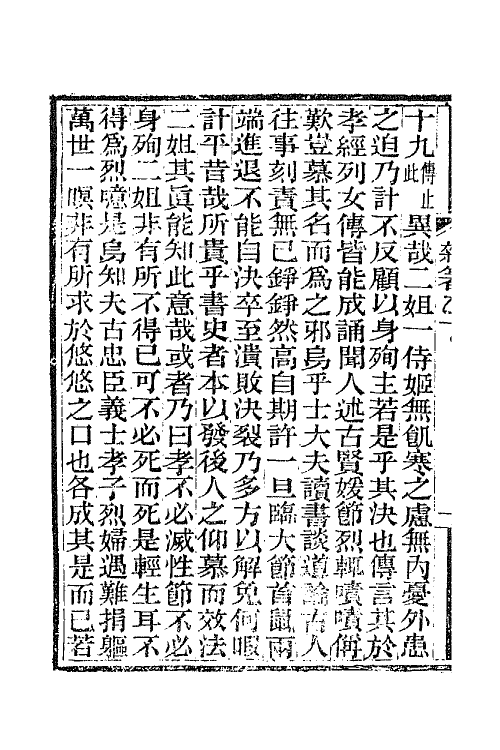 十九傳止此異哉二姐一侍姬無飢寒之慮無內憂外患
之迫乃計不反顧以身殉主若是乎其決也傳言其於
孝經列女傳皆能成誦聞人述古賢媛節烈輒嘖嘖傾
歎豈慕其名而為之邪烏乎士大夫讀書談道論古人
往事刻責無已錚錚然高自期許一旦臨大節首鼠兩
端進退不能自決卒至潰敗決裂乃多方以解免何暇
計平昔哉所貴乎書史者本以發後人之仰慕而效法
二姐其眞能知此意哉或者乃曰孝不必滅性節不必
身殉二姐非有所不得已可不必死而死是輕生耳不
得為烈噫是烏知夫古忠臣義士孝子烈婦遇難捐軀
萬世一瞑非有所求於悠悠之口也各成其是而已若